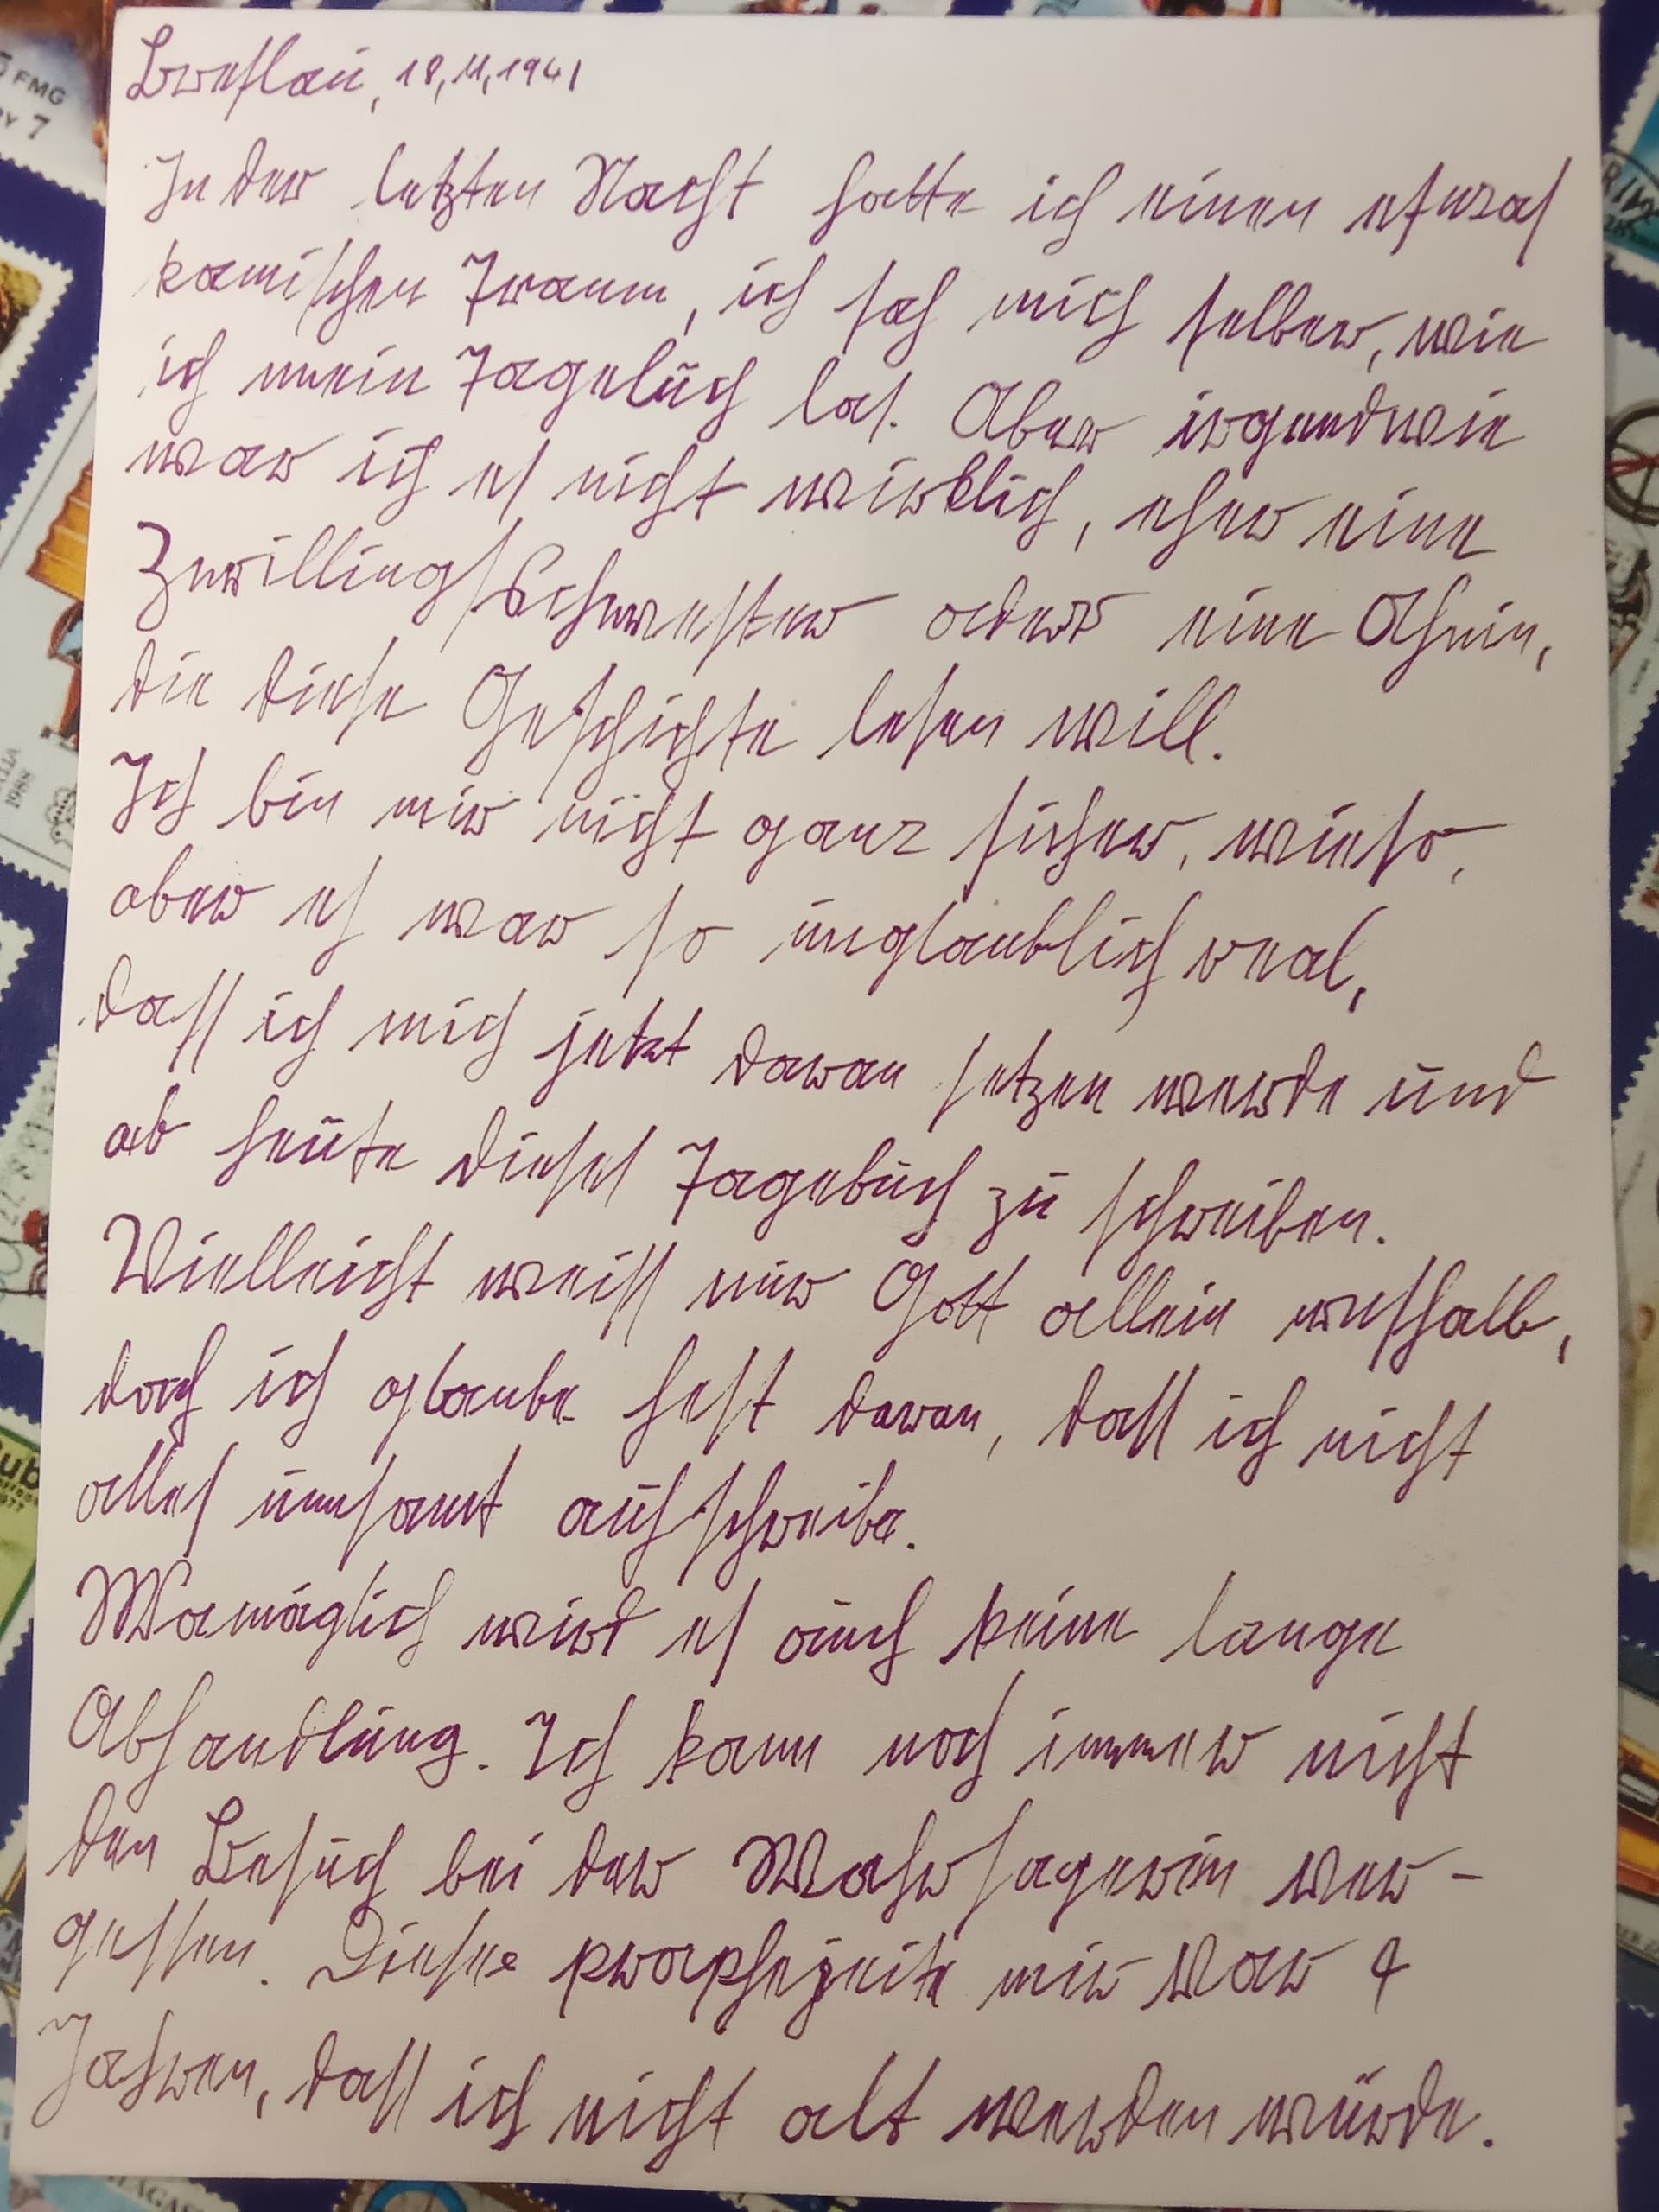 Breslau, 18.11.1941
In der letzten Nacht hatte ich einen etwas
komischen Traum, ich sah mich selber, wie
ich mein Tagebuch las. Aber irgendwie
war ich es nicht wirklich, eher eine
Zwillingsschwester oder eine Ahnin,
die diese Geschichte lesen will.
Ich bin mir nicht ganz sicher, wieso,
aber es war so unglaublich real,
dass ich mich jetzt daran setzen werde und
ab heute dieses Tagebuch zu schreiben.
Vielleicht weiss nur Gott allein weshalb,
doch ich glaube fest daran, dass ich nicht
alles umsonst aufschreibe.
Womöglich wird es auch keine lange
Abhandlung. Ich kann noch immer nicht
den Besuch bei der Wahrsagerin ver-
gessen. Diese prophezeite mir vor 4
Jahren, dass ich nicht alt werden würde.